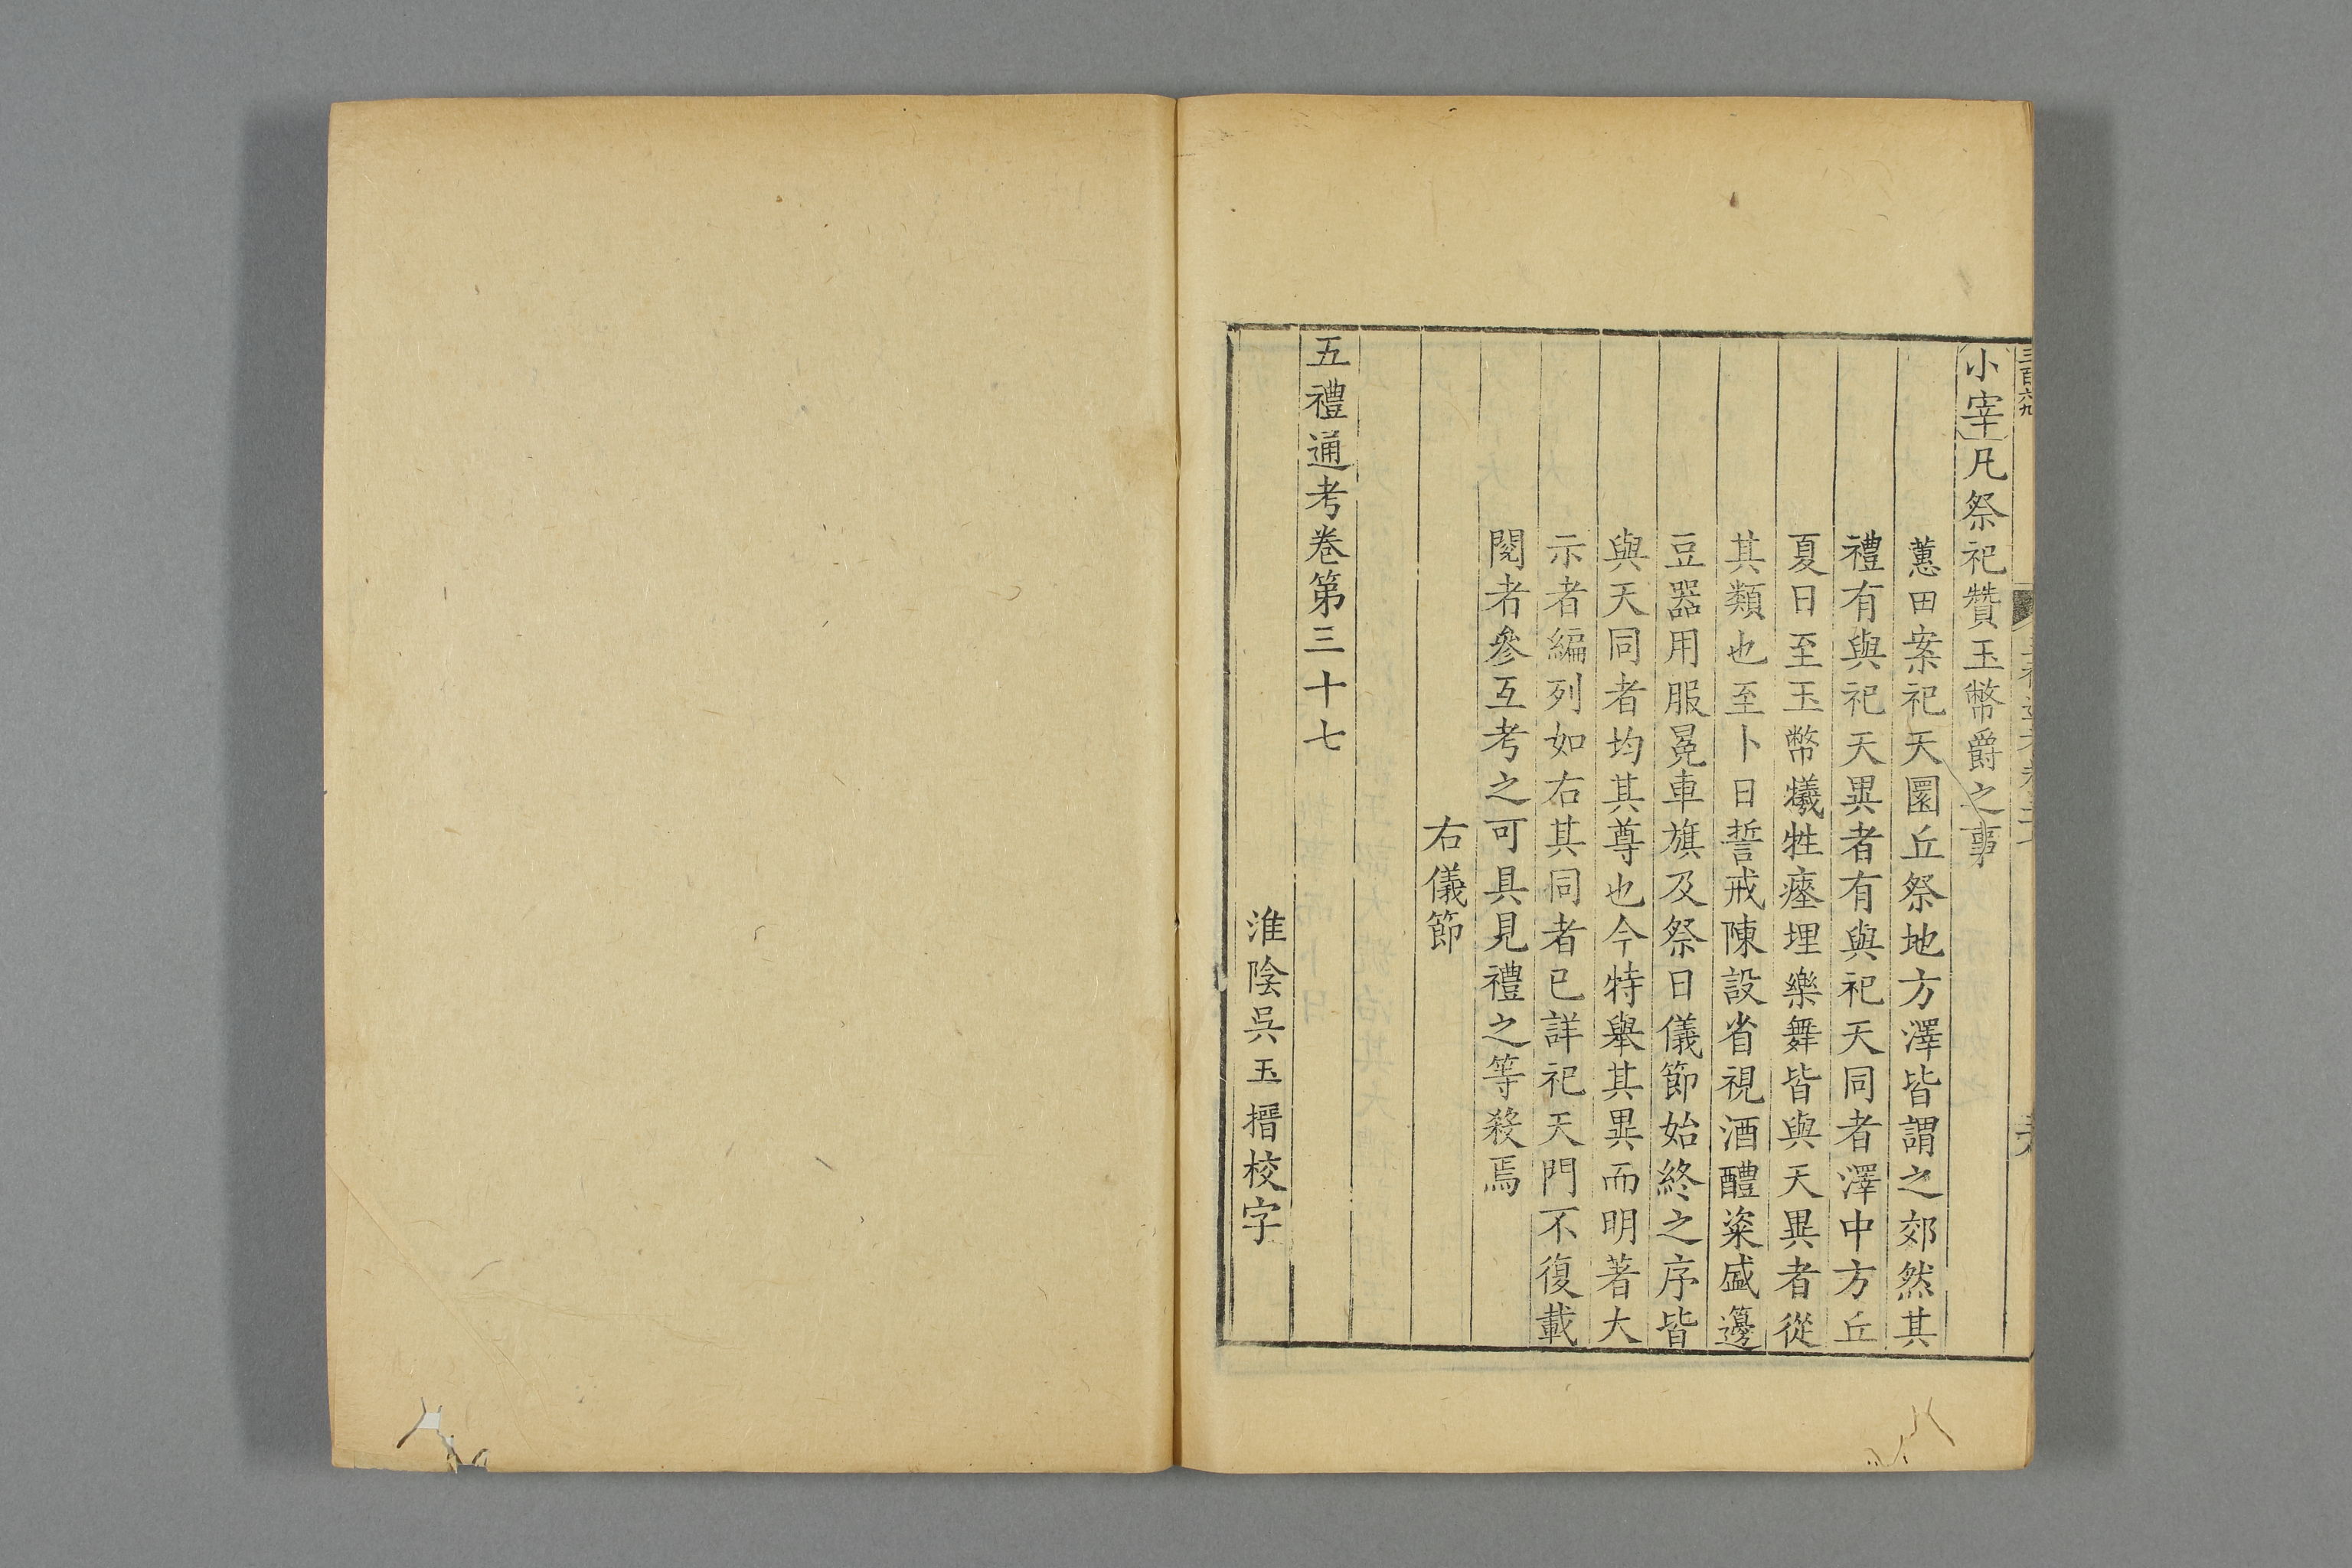 三百六九
小宰凡祭祀贊玉幣爵之事
蕙田案祀天圜丘祭地方澤皆謂之郊然其
禮有與祀天異者有與祀天同者澤中方丘
夏日至玉幣犧牲瘞埋樂舞皆與天異者從
其類也至卜日誓戒陳設省視酒醴粢盛籩
豆器用服冕車旗及祭日儀節始終之序皆
與天同者均其尊也今特舉其異而明著大
示者編列如右其同者已詳祀天門不復載
閱者參互考之可具見禮之等殺焉
右儀節
五禮通考卷第三十七
淮陰吳玉搢校字